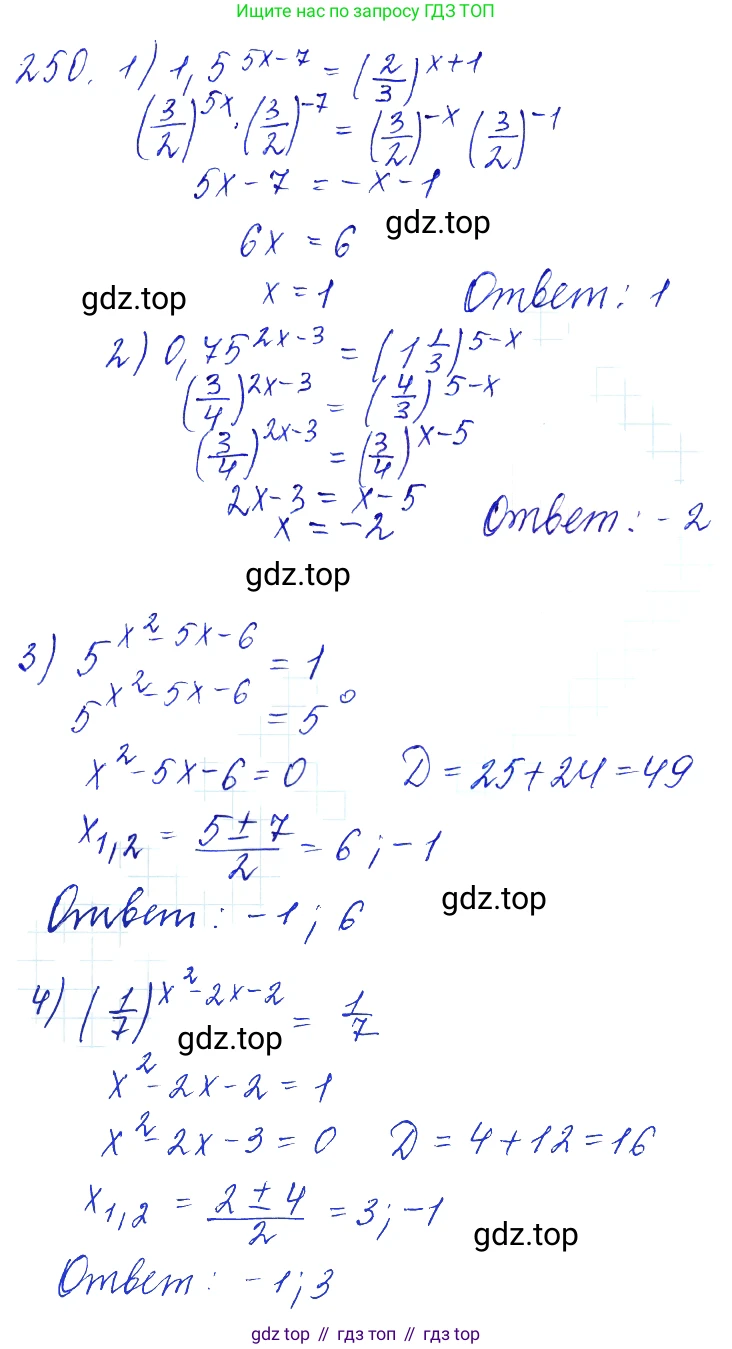 Ищите нас по запросу ГДЗ ТОП
250. 1) 1,5^(5x-7) = (2/3)^(x+1)
(3/2)^(5x) · (3/2)^(-7) = (3/2)^(-x) (3/2)^(-1)
5x - 7 = -x - 1
gdz.top
6x = 6
gdz.top
x = 1 Ответ: 1
2) 0,75^(2x-3) = (1 1/3)^(5-x)
(3/4)^(2x-3) = (4/3)^(5-x)
(3/4)^(2x-3) = (3/4)^(x-5)
2x - 3 = x - 5
x = -2 Ответ: -2
gdz.top
3) 5^(x²-5x-6) = 1
5^(x²-5x-6) = 5^0
x² - 5x - 6 = 0 D = 25 + 24 = 49
x1,2 = (5 ± 7)/2 = 6; -1
Ответ: -1; 6 gdz.top
4) (1/7)^(x²-2x-2) = 1/7
gdz.top
x² - 2x - 2 = 1
x² - 2x - 3 = 0 D = 4 + 12 = 16
x1,2 = (2 ± 4)/2 = 3; -1
gdz.top
Ответ: -1; 3
gdz top // гдз топ // gdz top